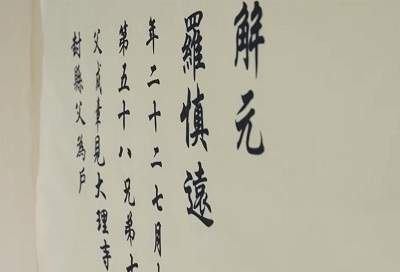 解元
羅慎遠
年二十二七月十
第五十八兄弟十
父成章見大理寺
封縣父為戶